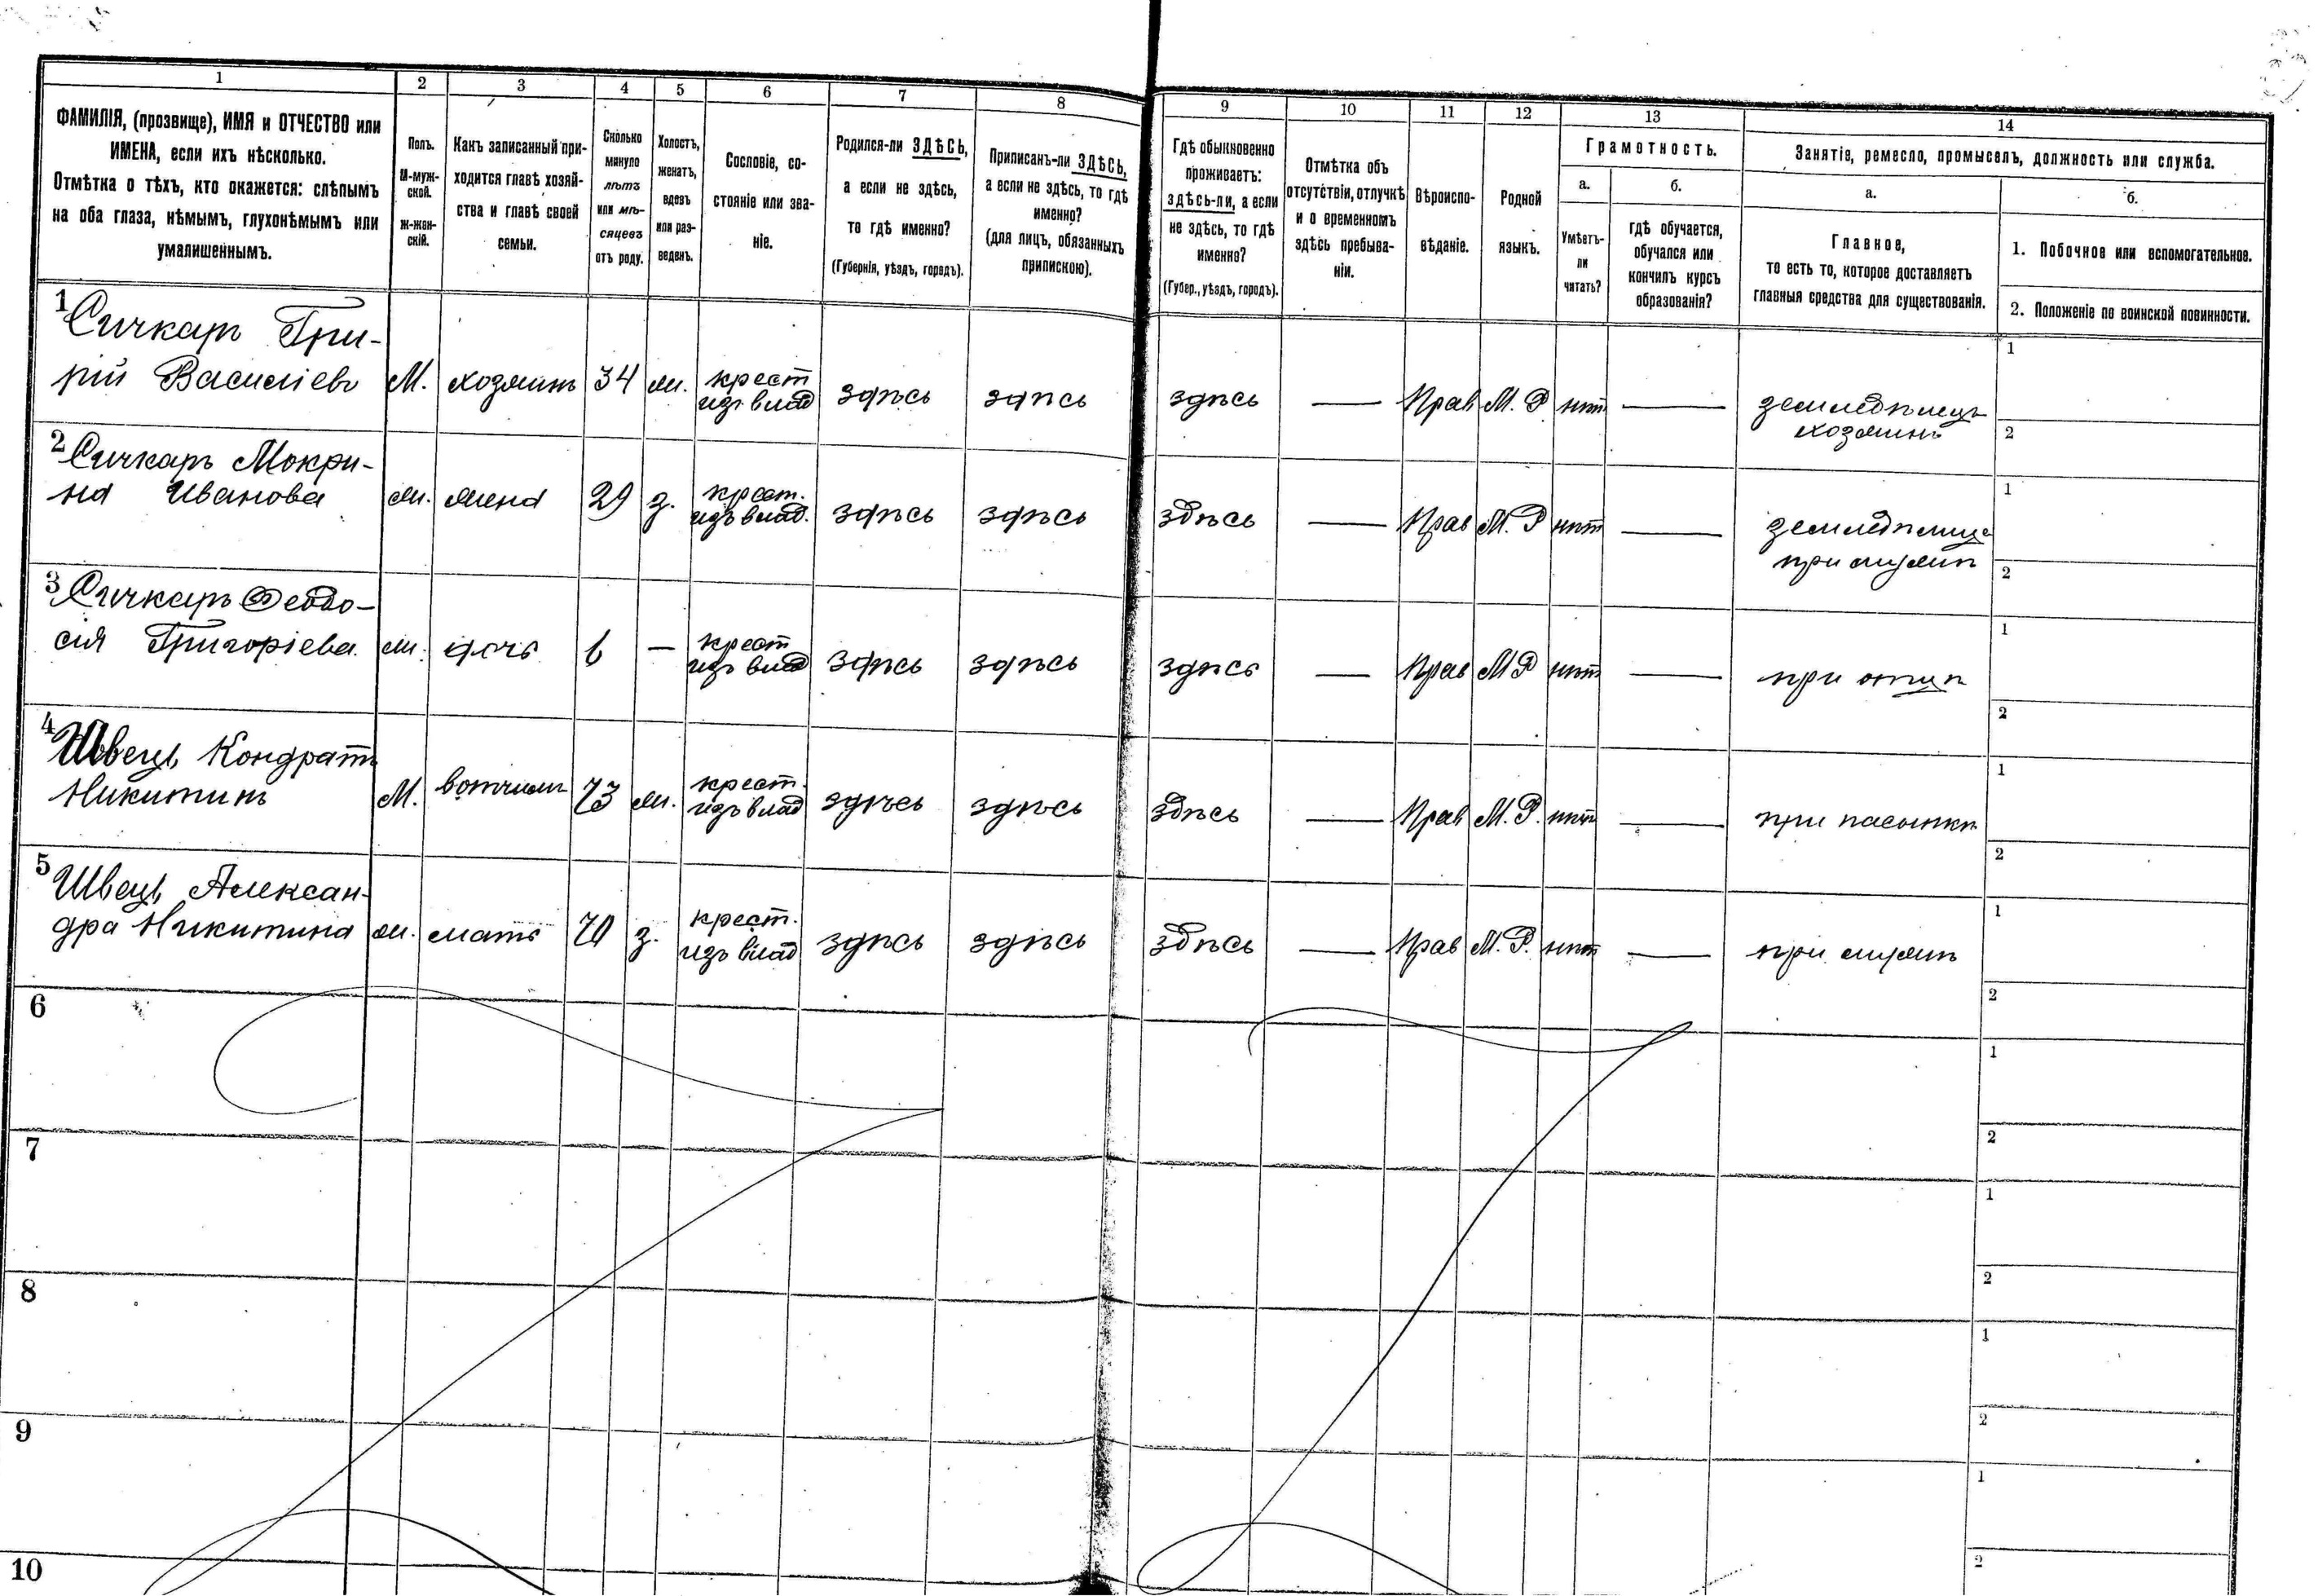 1
2
3
4
5
6
7
8
9
10
11
12
13
14
ФАМИЛІЯ, (прозвище), ИМЯ и ОТЧЕСТВО или
ИМЕНА, если ихъ нѣсколько.
Отмѣтка о тѣхъ, кто окажется: слѣпымъ
на оба глаза, нѣмымъ, глухонѣмымъ или
умалишеннымъ.
Полъ.
М-муж-
ской.
Ж-жен-
скій.
Какъ записанный при-
ходится главѣ хозяй-
ства и главѣ своей
семьи.
Сколько
минуло
лѣтъ
или мѣ-
сяцевъ
отъ роду.
Холостъ,
женатъ,
вдовъ
или раз-
веденъ.
Сословіе, со-
стояніе или зва-
ніе.
Родился-ли ЗДѢСЬ,
а если не здѣсь,
то гдѣ именно?
(Губернія, уѣздъ, городъ).
Приписанъ-ли ЗДѢСЬ,
а если не здѣсь, то гдѣ
именно?
(для лицъ, обязанныхъ
припискою).
Гдѣ обыкновенно
проживаетъ:
здѣсь-ли, а если
не здѣсь, то гдѣ
именно?
(Губер., уѣздъ, городъ).
Отмѣтка объ
отсутствіи, отлучкѣ
и о временномъ
здѣсь пребыва-
ніи.
Вѣроиспо-
вѣданіе.
Родной
языкъ.
Грамотность.
а.
Умѣетъ-
ли
читать?
б.
гдѣ обучается,
обучался или
кончилъ курсъ
образованія?
Занятіе, ремесло, промыселъ, должность или служба.
а.
Главное,
то есть то, которое доставляетъ
главныя средства для существованія.
б.
1. Побочное или вспомогательное.
2. Положеніе по воинской повинности.
1 Сичкарь Гри-
рій Василіевъ М. хозяинъ 34 ж. крест
изъ влад здѣсь здѣсь здѣсь — Прав М. Р нѣт — земледѣлецъ
хозяинъ
1
2
2 Сичкарь Мокри-
на Иванова ж. жена 29 з. крест.
изъ влад. здѣсь здѣсь здѣсь — Прав М. Р нѣт — земледѣлица
при мужѣ
1
2
3 Сичкарь Ѳеодо-
сія Григоріева ж. дочь 6 — крест
изъ влад здѣсь здѣсь здѣсь — Прав М Р нѣт — при отцѣ
1
2
4 Швецъ Кондратъ
Никитинъ М. вотчимъ 73 ж. крест.
изъ влад здѣсь здѣсь здѣсь — Прав М. Р. нѣт — при пасынкѣ
1
2
5 Швецъ Алексан-
дра Никитина ж. мать 70 з. крест.
изъ влад здѣсь здѣсь здѣсь — Прав М. Р. нѣт — при мужѣ
1
2
6
1
2
7
1
2
8
1
2
9
1
2
10